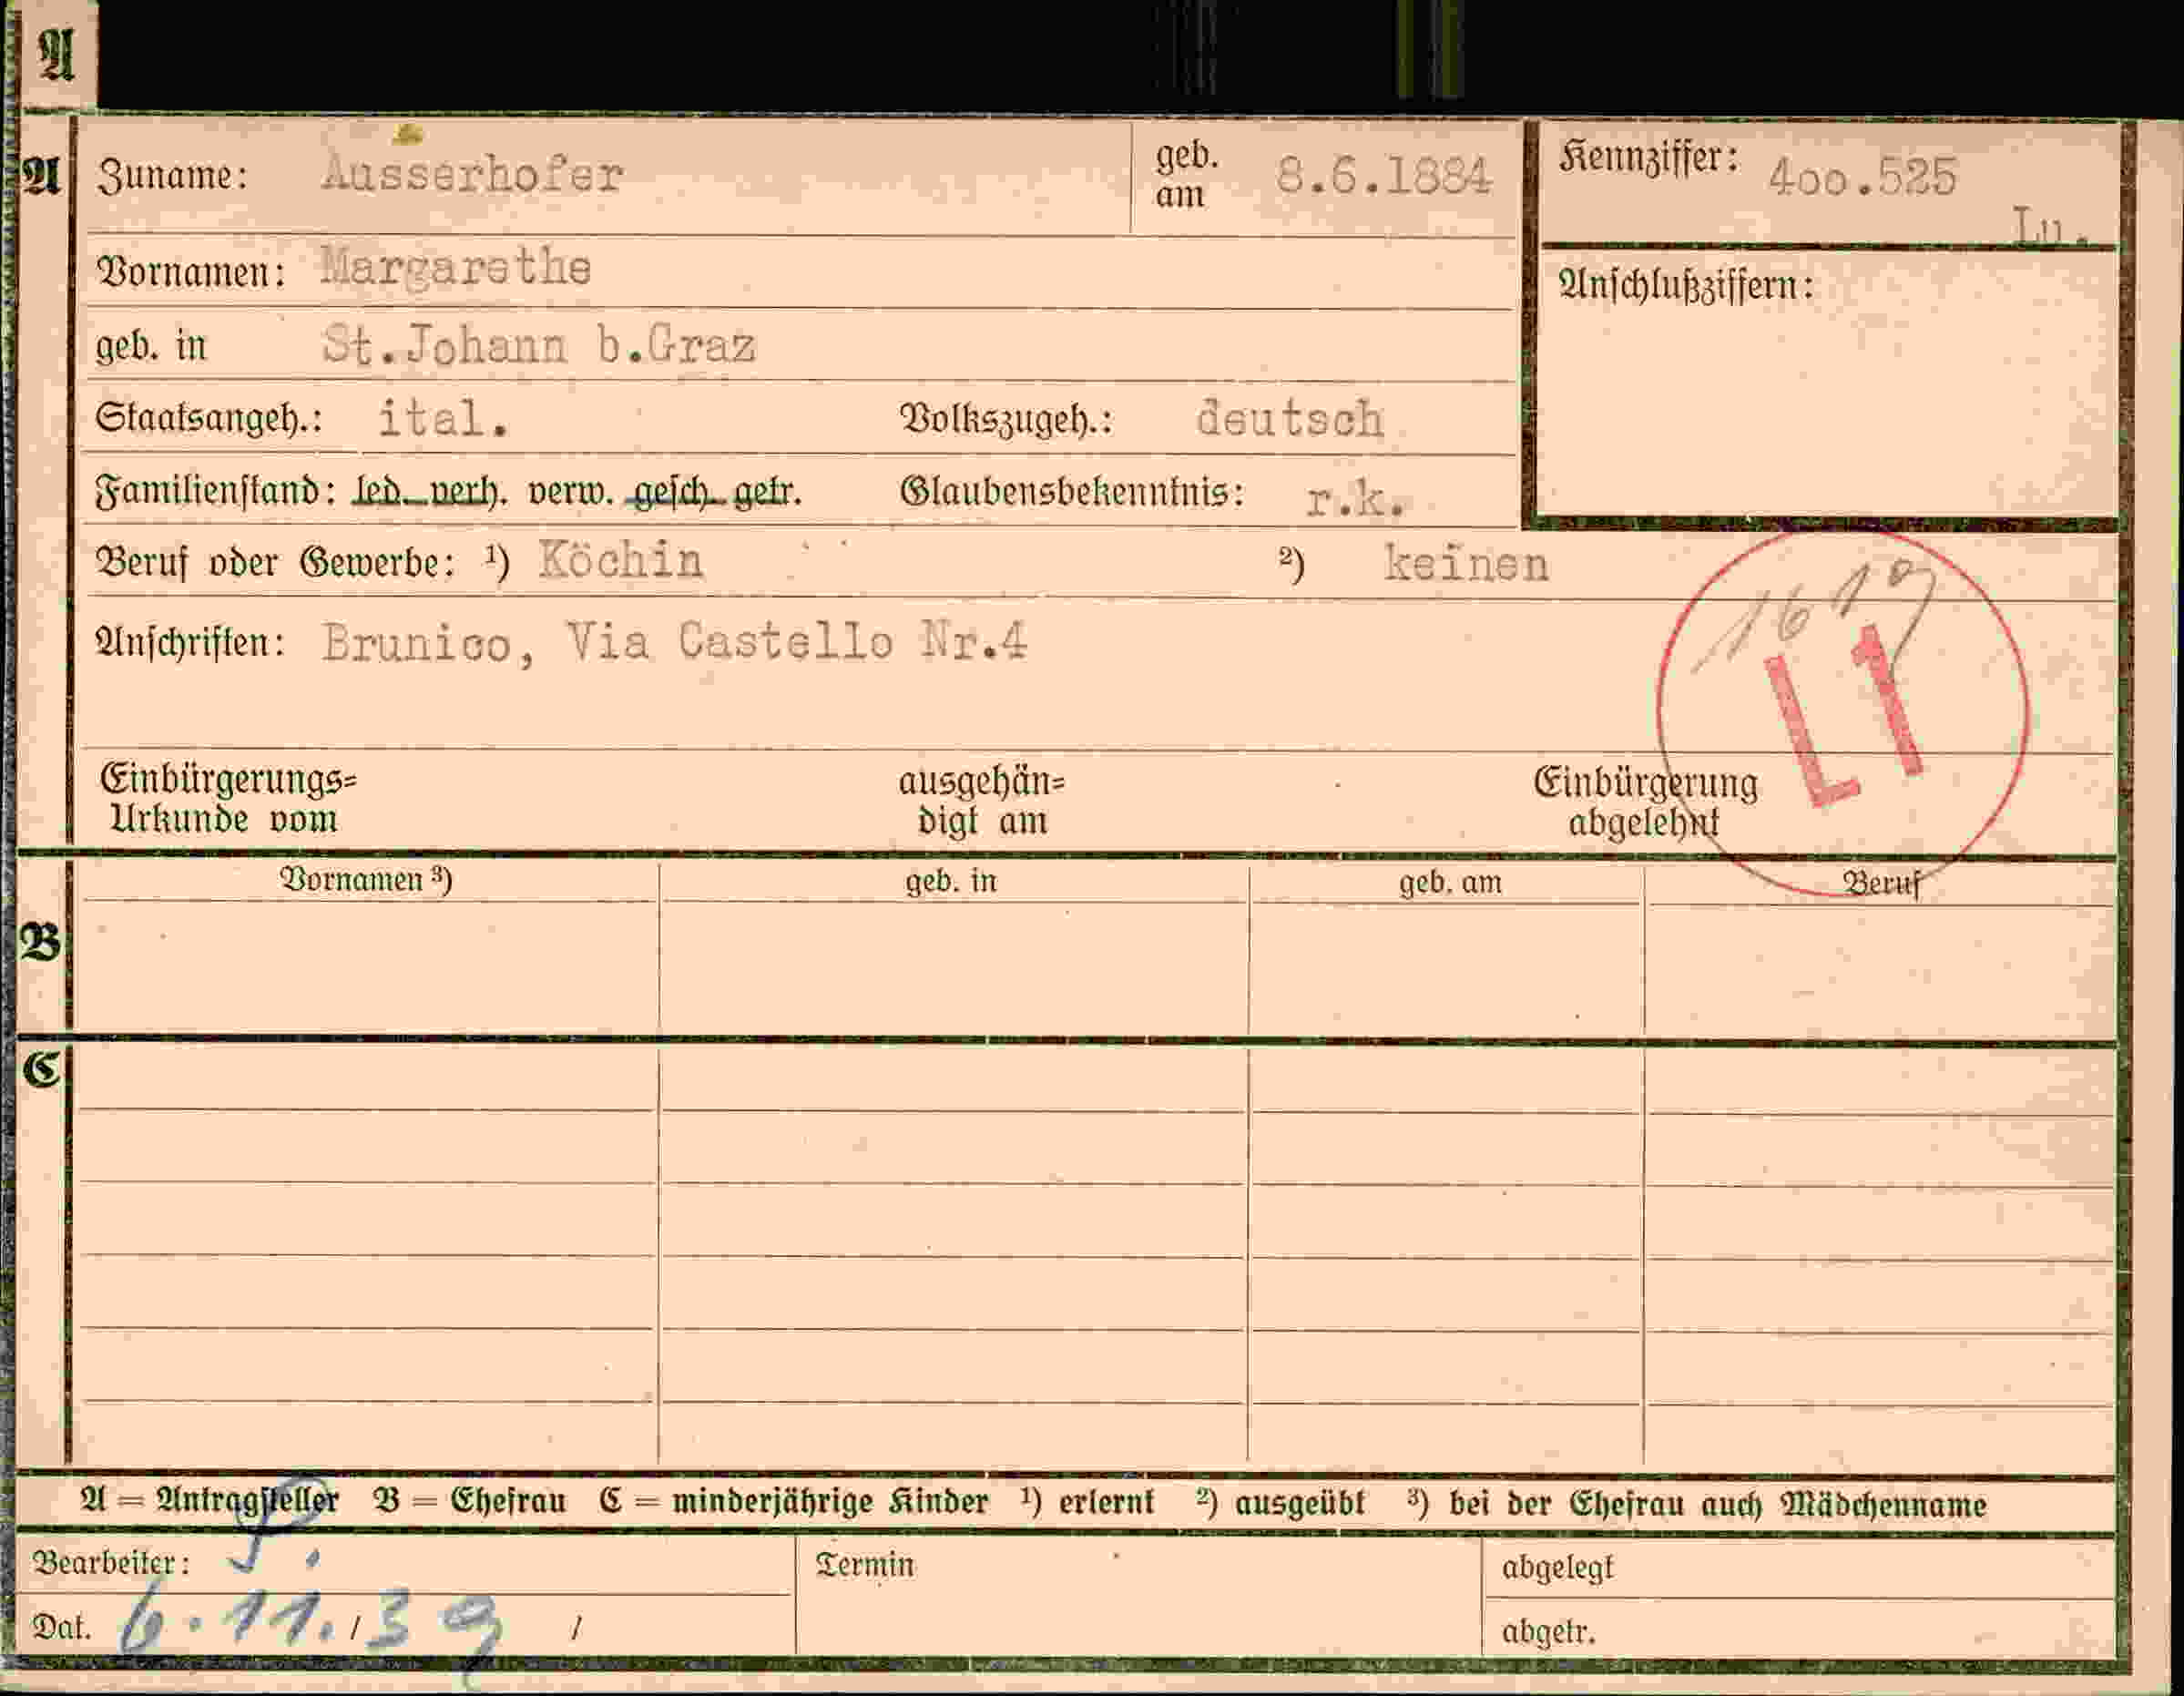 A
A Zuname: Ausserhofer geb. am 8.6.1884 Kennziffer: 4oo.525
Lu.
Vornamen: Margarethe
Anschlußziffern:
geb. in St.Johann b.Graz
Staatsangeh.: ital. Volkszugeh.: deutsch
Familienstand: led. verh. verw. gesch. getr. Glaubensbekenntnis: r.k.
Beruf oder Gewerbe: ¹) Köchin ²) keinen
Anschriften: Brunico, Via Castello Nr.4
L1
Einbürgerungs= ausgehän= Einbürgerung
Urkunde vom digt am abgelehnt
Vornamen ³) geb. in geb. am Beruf
B
C
A = Antragsteller B = Ehefrau C = minderjährige Kinder ¹) erlernt ²) ausgeübt ³) bei der Ehefrau auch Mädchenname
Bearbeiter: Termin abgelegt
Dat. 6.11./39 / abgetr.